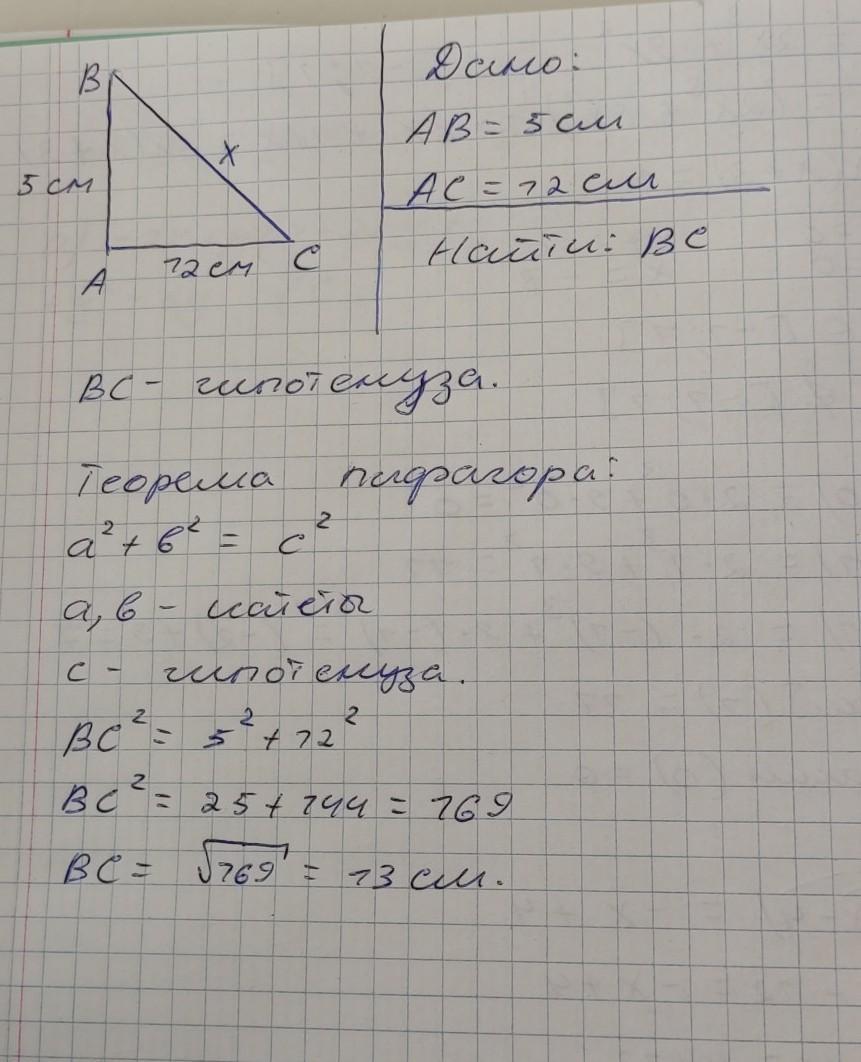 B
x
5 см
A
12 см
C
Дано:
AB = 5 см
AC = 12 см
Найти: BC
BC - гипотенуза.
Теорема пифагора:
a² + b² = c²
a, b - катеты
c - гипотенуза.
BC² = 5² + 12²
BC² = 25 + 144 = 169
BC = √169 = 13 см.